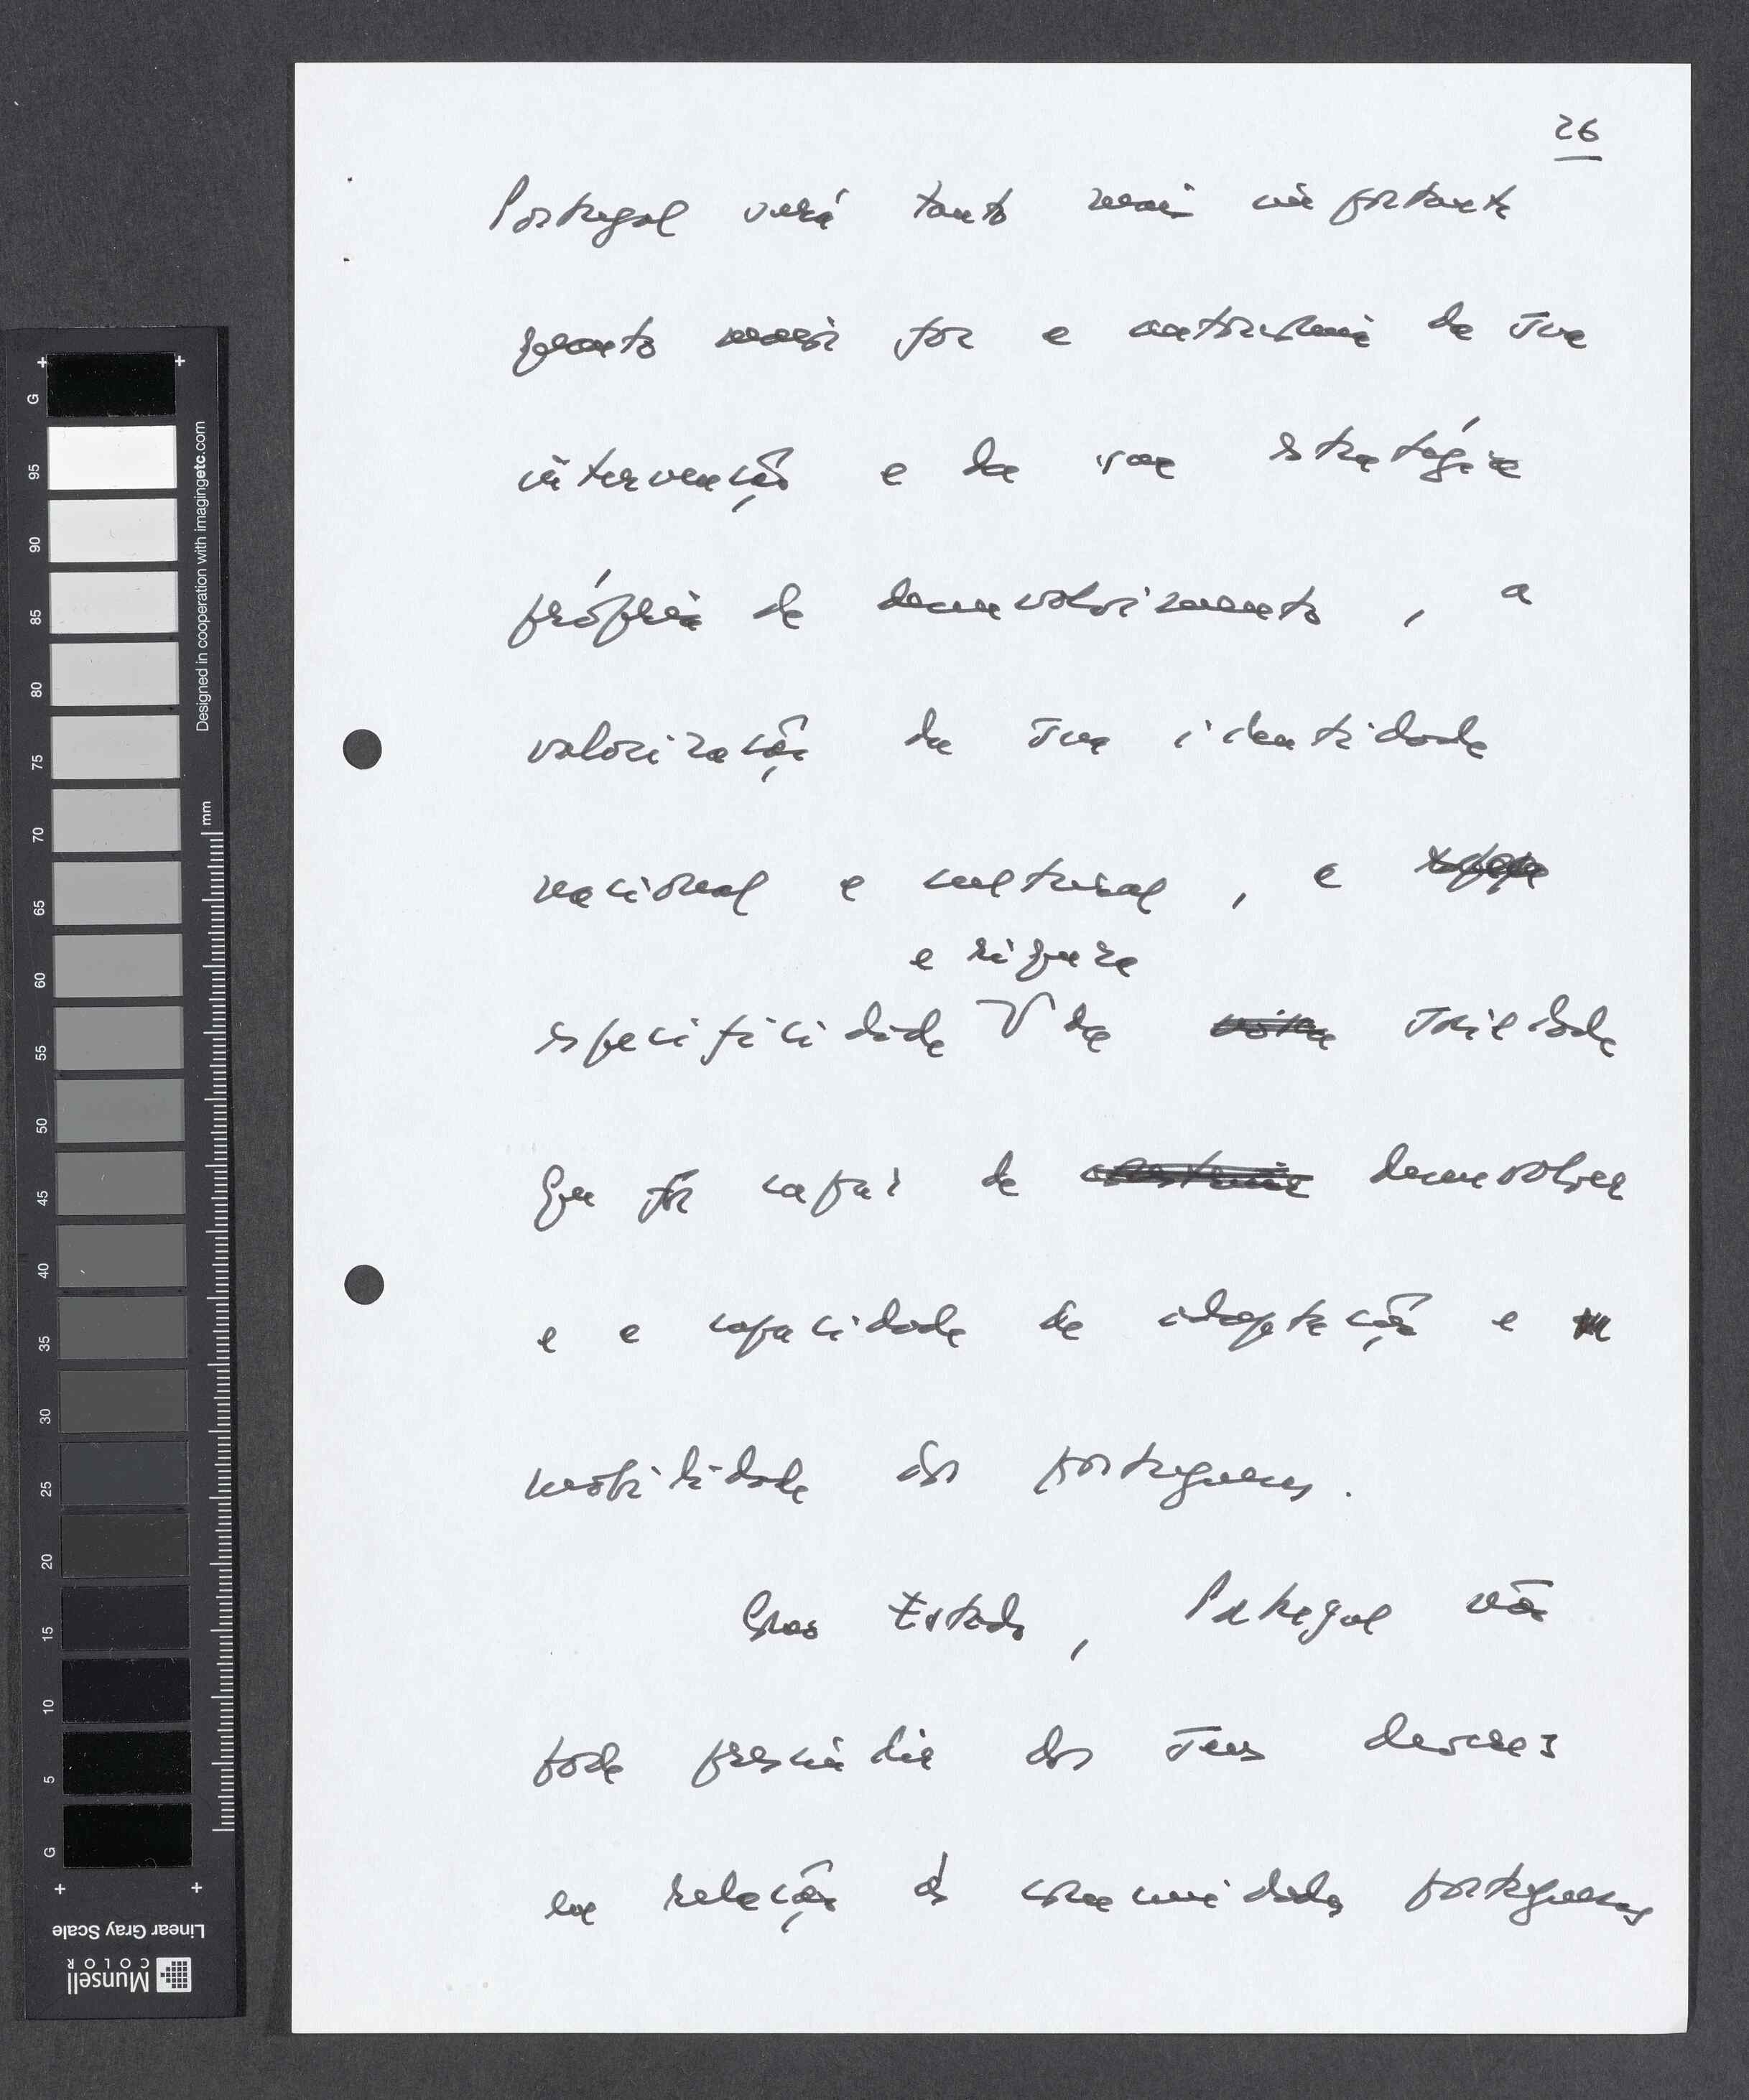 26
Portugal será tanto mais importante
quanto maior for a autonomia da sua
intervenção e da sua estratégia
própria de desenvolvimento, a
valorização da sua identidade
nacional e cultural, a
e riqueza
especificidade da sociedade
que for capaz de desenvolver
e a capacidade de adaptação e
mobilidade dos portugueses.
Estado, Portugal não
pode prescindir dos seus deveres
em relação às comunidades portuguesas
G
95
90
85
80
75
70
65
60
55
50
45
40
35
30
25
20
15
10
5
G
Designed in cooperation with imagingetc.com
mm
Linear Gray Scale
Munsell
COLOR